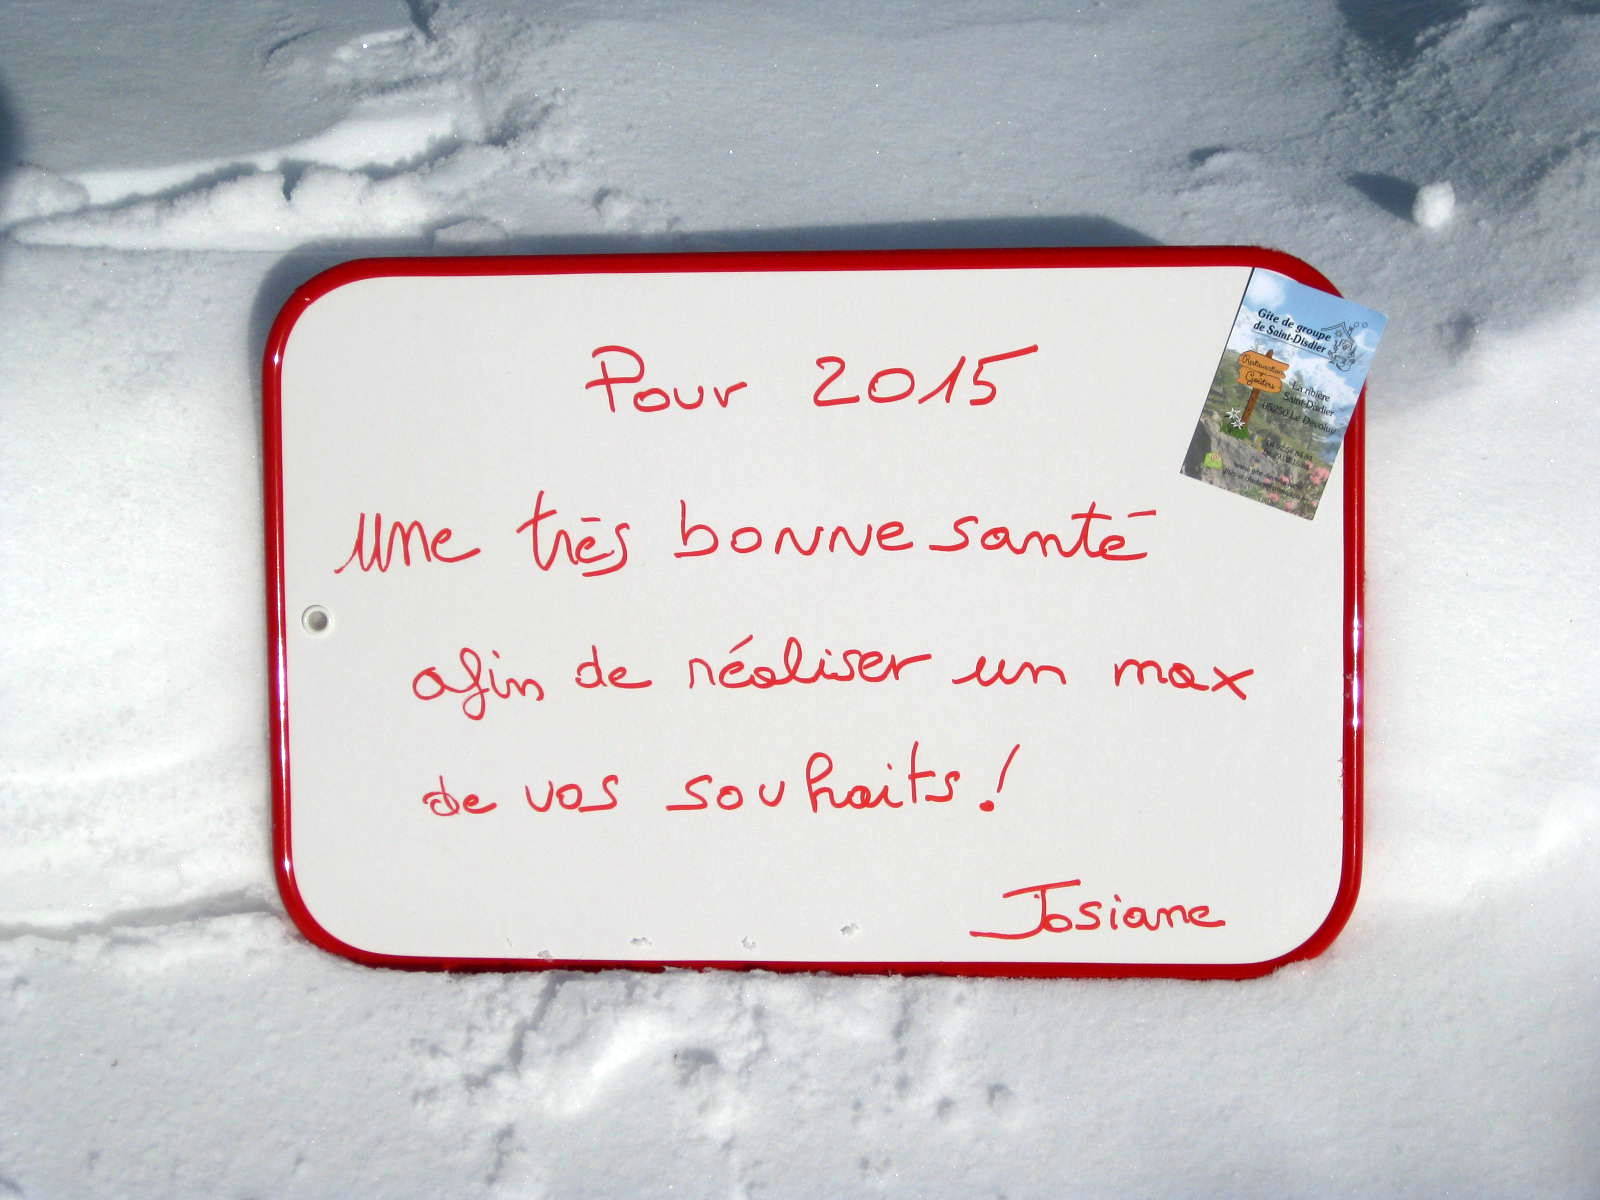 Pour 2015
une très bonne santé
afin de réaliser un max
de vos souhaits!
Josiane
Gîte de groupe
de Saint-Disdier
Restauration
Goûters
La ribière
Saint-Disdier
05250 Le Dévoluy